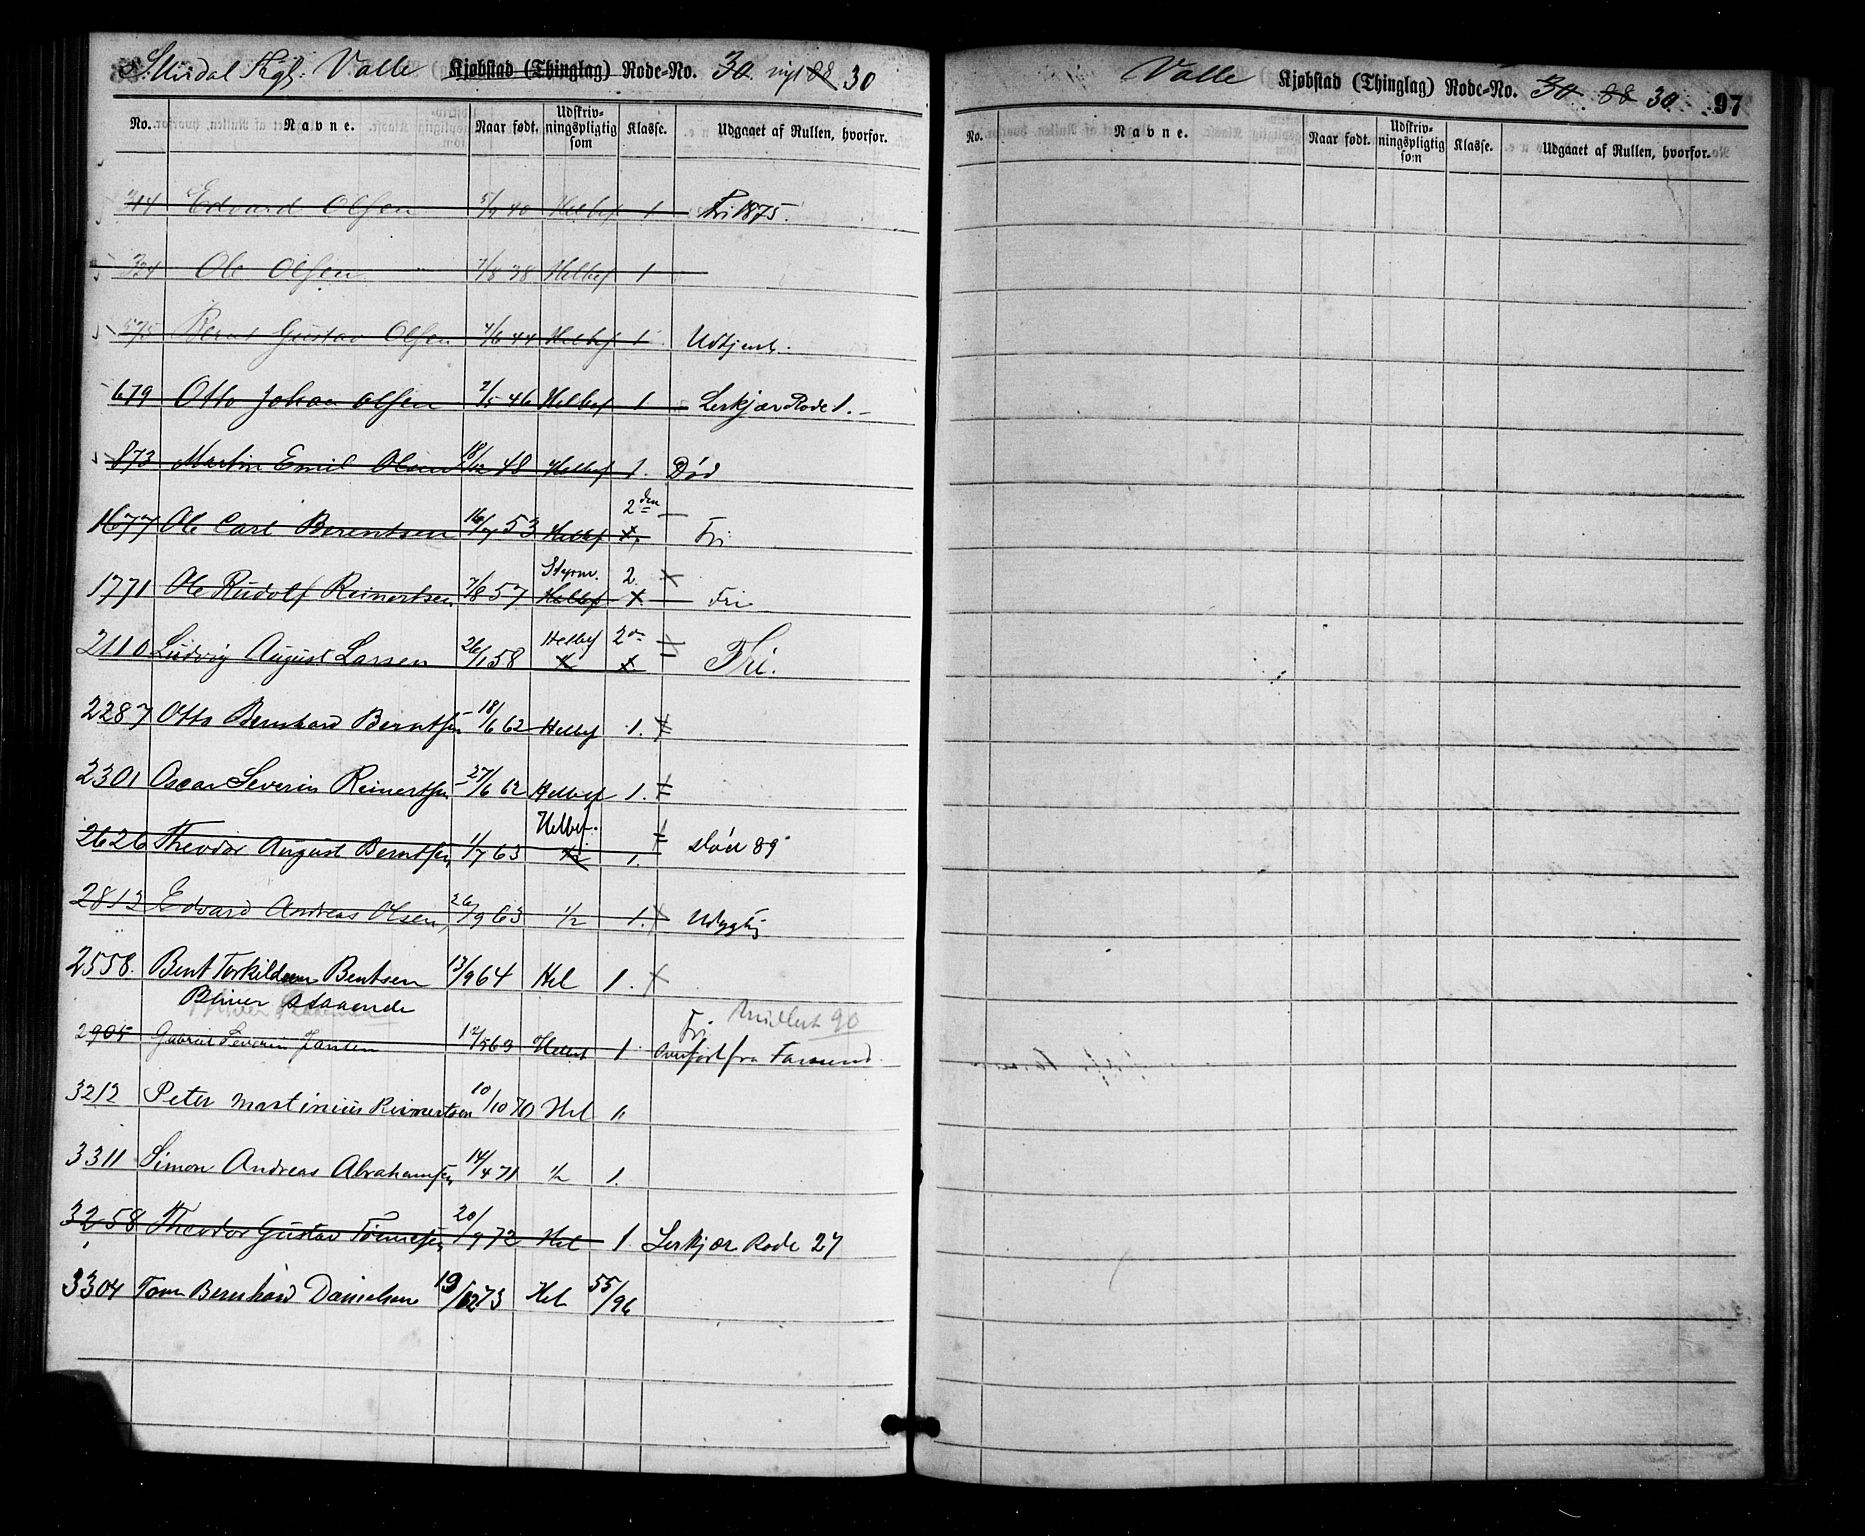 S. Undal Thgl: Valle Kjøbstad (Thinglag) Rode-No. 30. nyt 88 30
No. Navne. Naar født. Udskriv-ningspligtig som Klasse. Udgaaet af Rullen, hvorfor.
344 Edvard Olsen 5/9 40 Helbef 1 Fri 1875.
334 Ole Olsen 7/8 38 Helbef 1
575 Bernt Gustav Olsen 4/6 44 Helbef 1 Udtjent.
679 Otto Johan Olsen 2/5 46 Helbef 1 Lerkjær Rode 1.
873 Martin Emil Olsen 18/12 48 Helbef 1. Død
2den
1677 Ole Carl Berentsen 16/7 53 Helbef Fri
Styrm. 2.
1771 Ole Rudolf Reinertsen 7/8 57 Helbef Fri
Helbef 2den
2110 Ludvig August Larsen 26/1 58 Fri.
2287 Otto Bernhard Berntsen 18/6 62 Helbef 1.
2301 Oscar Severin Reinertsen 27/6 62 Helbef 1.
Helbef.
2626 Theodor August Berntsen 1/7 63 1. død 89
2813 Edvard Andreas Olsen 26/9 63 1/2 1. Udygtig
2558. Bent Torkildsen Bentsen 13/9 64 Hel 1.
Bliver staaende
2905 Gabriel Severin Jansen 12/5 69 Helbef 1 Fri 90
Overført fra Farsund.
3212 Peter Martinius Reinertsen 10/10 70 Hel "
3311 Simon Andreas Abrahamsen 14/4 71 1/2 1.
3258 Theodor Gustav Tønnesen 20/9 72 Hel 1 Lerkjær Rode 27
3304 Tom Bernhard Danielsen 19/12 73 Hel 55/96
Valle Kjøbstad (Thinglag) Rode-No. 30. 88 30 97
No. Navne. Naar født. Udskriv-ningspligtig som Klasse. Udgaaet af Rullen, hvorfor.